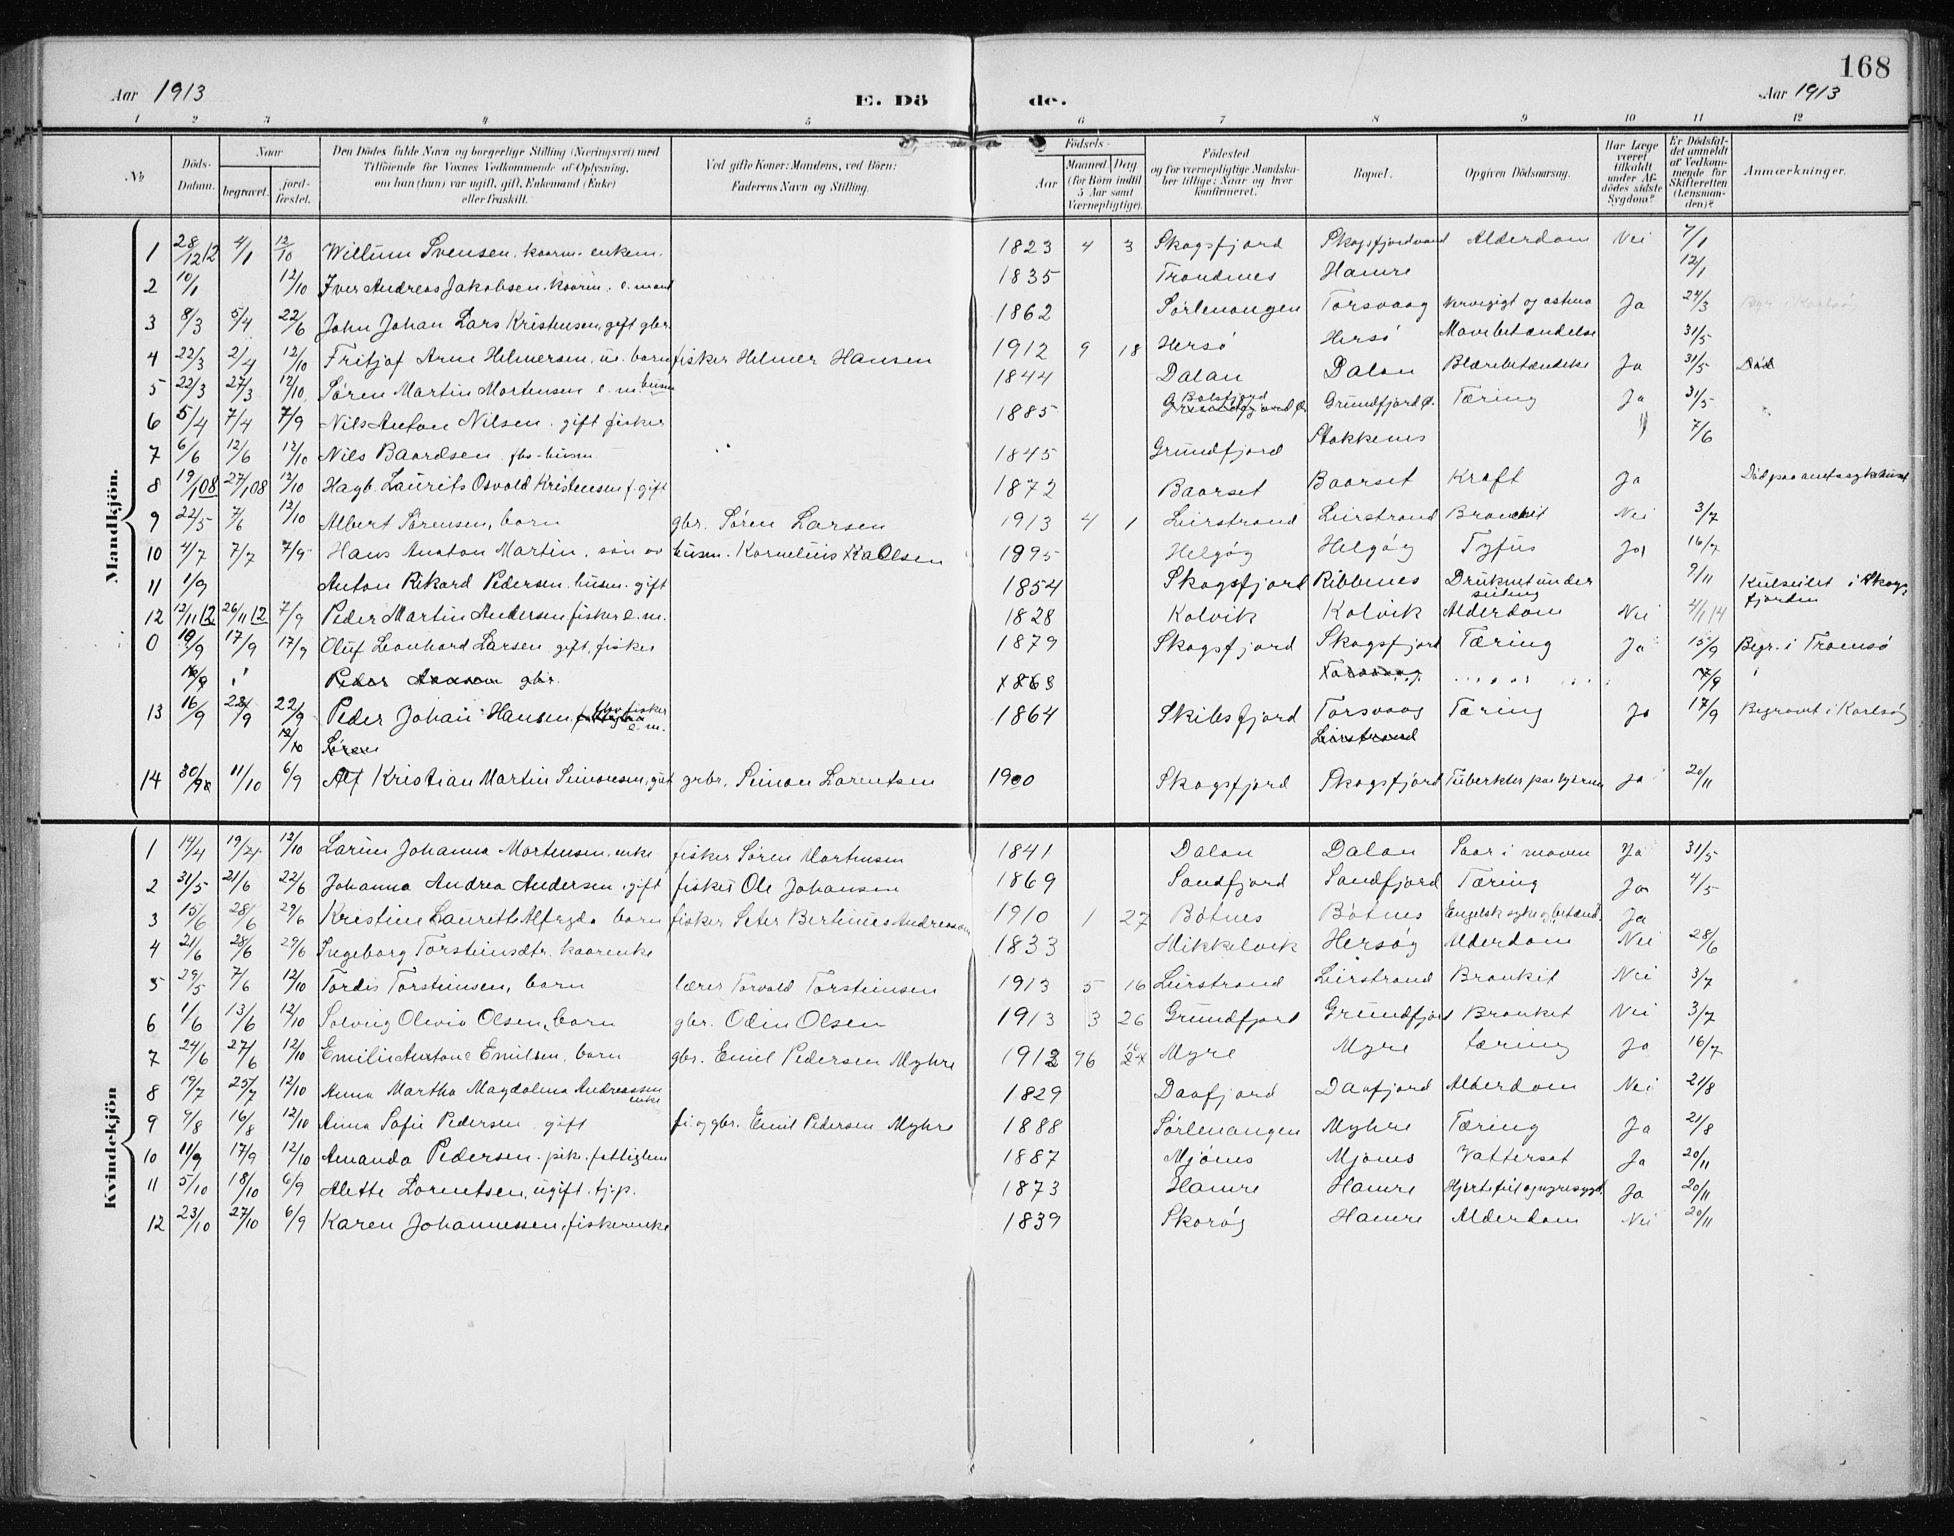 168
Aar 1913
E. Dö
de.
Aar 1913
1 2 3 4 5 6 7 8 9 10 11 12
No
Döds-Datum.
Naar
begravet.
jord-fæstet.
Den Dödes fulde Navn og borgerlige Stilling (Næringsvei) med
Tilföiende for Voxnes Vedkommende af Oplysning,
om han (hun) var ugift, gift, Enkemand (Enke)
eller fraskilt.
Ved gifte Koner: Mandens, ved Börn:
Faderens Navn og Stilling.
Födsels-
Aar
Maaned
Dag
(for Börn indtil
5 Aar samt
Værnepligtige).
Födested
og for værnepligtige Mandska-
ber tillige: Naar og hvor
konfirmeret.
Bopæl.
Opgiven Dödsaarsag.
Har Læge
været
tilkaldt
under Af-
dödes sidste
Sygdom?
Er Dödsfal-
det anmeldt
af Vedkom-
mende for
Skifteretten
(Lensman-
den)?
Anmærkninger.
Mandkjön.
1 28/12 12 4/1 12/10 Willum Svensen. kaarm. enkem. 1823 4 3 Skogsfjord Skogsfjordvand Alderdom Nei 7/1
2 10/1 12/10 Iver Andreas Jakobsen. kaarm. e.mand 1835 Trondenes Hamre 12/1
3 8/3 5/4 22/6 John Johan Lars Kristensen, gift gbr. 1862 Sörlenangen Torsvaag Nervegigt og astma Ja 24/3 Begr. i Karlsö
4 22/3 2/4 12/10 Fritjof Arne Helmersen, barn fisker Helmer Hansen 1912 9 18 Hersö Hersö Mavebetændelse 31/5
5 22/3 27/3 12/10 Sören Martin Mortensen e.m. husm 1844 Dalan Dalan Blærebetændelse Ja 31/5
6 5/4 7/4 7/9 Nils Anton Nilsen. gift fisker 1885 Balsfjord Grundfjord Tæring Ja 31/5
7 6/6 12/6 12/10 Nils Baardsen 1845 Grundfjord Stakkenes 7/6
8 19/1 08 27/1 08 12/10 Hagb. Laurits Osvald Kristensen f. gift 1872 Baarset Baarset Kræft Ja Död paa amtssykehuset
9 22/5 7/6 12/10 Albert Sörensen, barn gbr. Sören Larsen 1913 4 1 Leirstrand Leirstrand Bronchit Nei 3/7
10 4/7 7/7 7/9 Hans Anton Martin, sön av husm. Kornelius Olsen 1895 Helgöy Helgöy Tyfus Ja 16/7
11 1/9 Anton Rikard Pedersen. husm. gift 1854 Skogsfjord Ribbenes Druknet under seiling 9/11 Kulseilet i Skogsfjorden
12 12/11 12 26/11 12 7/9 Peder Martin Andersen fisker e.m. 1828 Kolvik Kolvik Alderdom Nei 2/1 14
0 10/9 17/9 17/9 Oluf Leonhard Larsen, gift, fisker 1879 Skogsfjord Skogsfjord Tæring Ja 15/9 Begr. i Tromsö
16/9 Peder gbr. 1863 Torsvaag 17/9
13 16/9 22/9 22/9 Peder Johan Hansen, gbr. fisker e.m. 1864 Skibsfjord Torsvaag Tæring Ja 17/9 Begravet i Karlsöy
12/10 Sören Leirstrand
14 30/9 11/10 6/9 Alf Kristian Martin Simonsen, gut grbr. Simon Lorentsen 1900 Skogsfjord Skogsfjord Tuberkler paa hjernen ja 20/11
Kvindekjön
1 14/4 19/4 12/10 Larine Johanna Mortensen. enke fisker Sören Mortensen 1841 Dalan Dalan Saar i maven Ja 31/5
2 31/5 21/6 22/6 Johanna Andrea Andersen. gift fisker Ole Johansen 1869 Sandfjord Sandfjord Tæring Ja 4/5
3 15/6 28/6 29/6 Kristine Laurette Alfryda barn fisker Peter Bertinus Andreassen 1910 1 27 Bötnes Bötnes Engelsk syke og betænd. Ja
4 21/6 28/6 29/6 Ingeborg Torsteinsdtr. kaarenke 1833 Mikkelvik Hersöy Alderdom Nei 28/6
5 29/5 7/6 12/10 Tordis Torsteinsen, barn lærer Torvald Torsteinsen 1913 5 16 Leirstrand Leirstrand Bronkit Nei 3/7
6 1/6 13/6 12/10 Solveig Olivia Olsen, barn gbr. Odin Olsen 1913 3 26 Grundfjord Grundfjord Bronket Nei 3/7
7 24/6 27/6 12/10 Emilie Antone Emilsen, barn gbr. Emil Pedersen Myhre 1912 Myre Myre tæring Ja 16/7
8 19/7 25/7 12/10 Anna Martha Magdalena Andreassen enke 1829 Daafjord Daafjord Alderdom Nei 21/8
9 9/8 16/8 12/10 Anna Sofie Pedersen gift fi. og gbr. Emil Pedersen Myhre 1888 Sörlenangen Myhre Tæring Ja 21/8
10 11/9 17/9 12/10 Amanda Pedersen. pike. fattiglem 1887 Mjönes Mjönes Vattersot Ja 20/11
11 5/10 18/10 6/9 Alette Lorentsen, ugift. tj.p. 1873 Hamre Hamre Hjertefeil og nyresygd. Ja 20/11
12 23/10 27/10 6/9 Karen Johannessen, fiskerenke 1839 Skoröy Hamre Alderdom Nei 20/11